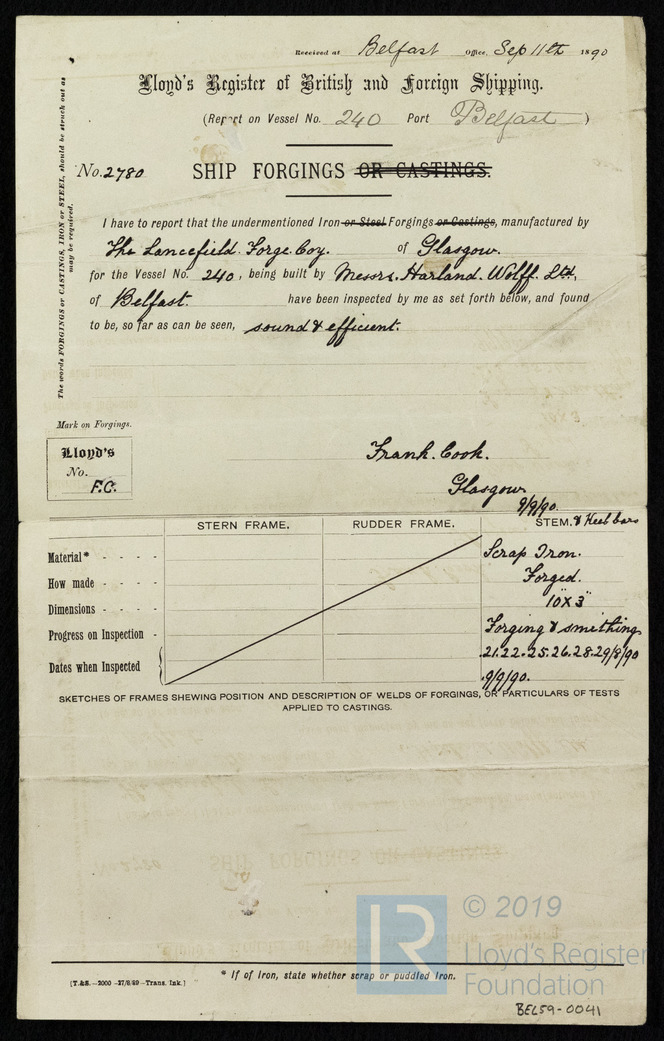 Received at Belfast Office, Sep 11th 1890
Lloyd's Register of British and Foreign Shipping.
(Report on Vessel No. 240 Port Belfast)
No. 2780 SHIP FORGINGS OR CASTINGS.
The words FORGINGS or CASTINGS, IRON or STEEL, should be struck out as
may be required.
I have to report that the undermentioned Iron or Steel Forgings or Castings, manufactured by
The Lancefield Forge Coy. of Glasgow.
for the Vessel No. 240, being built by Messrs. Harland. Wolff. Ltd,
of Belfast. have been inspected by me as set forth below, and found
to be, so far as can be seen, sound & efficient.
Mark on Forgings.
Lloyd's
No.
F.C.
Frank. Cook.
Glasgow
9/9/90.
STERN FRAME. RUDDER FRAME. STEM. & Keel bars
Material* - - - - Scrap Iron.
How made - - - - Forged.
Dimensions - - - - 10" x 3"
Progress on Inspection - Forging & smithing
Dates when Inspected 21.22.25.26.28.29/8/90
9/9/90.
SKETCHES OF FRAMES SHEWING POSITION AND DESCRIPTION OF WELDS OF FORGINGS, OR PARTICULARS OF TESTS
APPLIED TO CASTINGS.
* If of Iron, state whether scrap or puddled Iron.
[T.&S.—2000—27/8/89—Trans. Ink.]
LR
© 2019
Lloyd's Register
Foundation
BEL59-0041